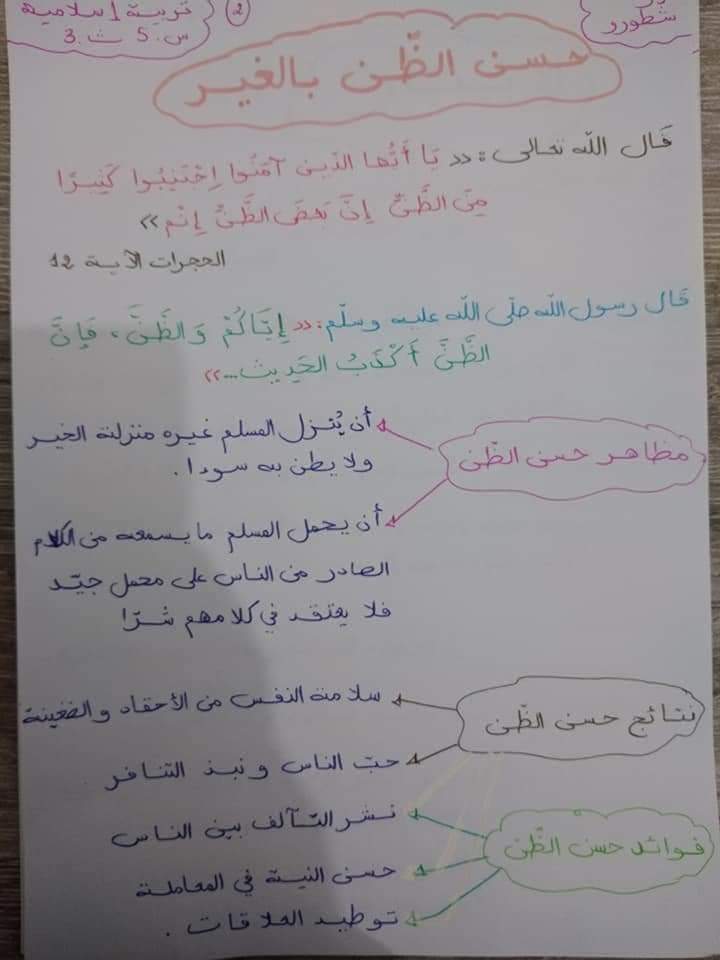 شطورر
2
تربية إسلامية
س.5 ث.3
حسن الظّن بالغير
قَال اللّه تعالى: << يَا أَيُّها الذين آمَنُوا اِجْتَنِبُوا كَثِيرًا
مِنَ الظَّنِّ إِنَّ بَعضَ الظَّنِّ إِثم >>
الحجرات الآية 12
قَال رسول اللّه صلّى اللّه عليه وسلّم: << إِيَّاكُمْ وَالظَّنَّ، فَإِنَّ
الظَّنَّ أَكْذَبُ الحَدِيث... >>
مظاهر حسن الظّن
أن يُنزل المسلم غيره منزلة الخير
ولا يظن به سوءا.
أن يحمل المسلم ما يسمعه من الكلام
الصادر من الناس على محمل جيّد
فلا يعتقد في كلامهم شرّا
نتائج حسن الظّن
سلامة النفس من الأحقاد والضغينة
حبّ الناس ونبذ التنافر
فوائد حسن الظّن
نشر التّآلف بين الناس
حسن النية في المعاملة
توطيد العلاقات.